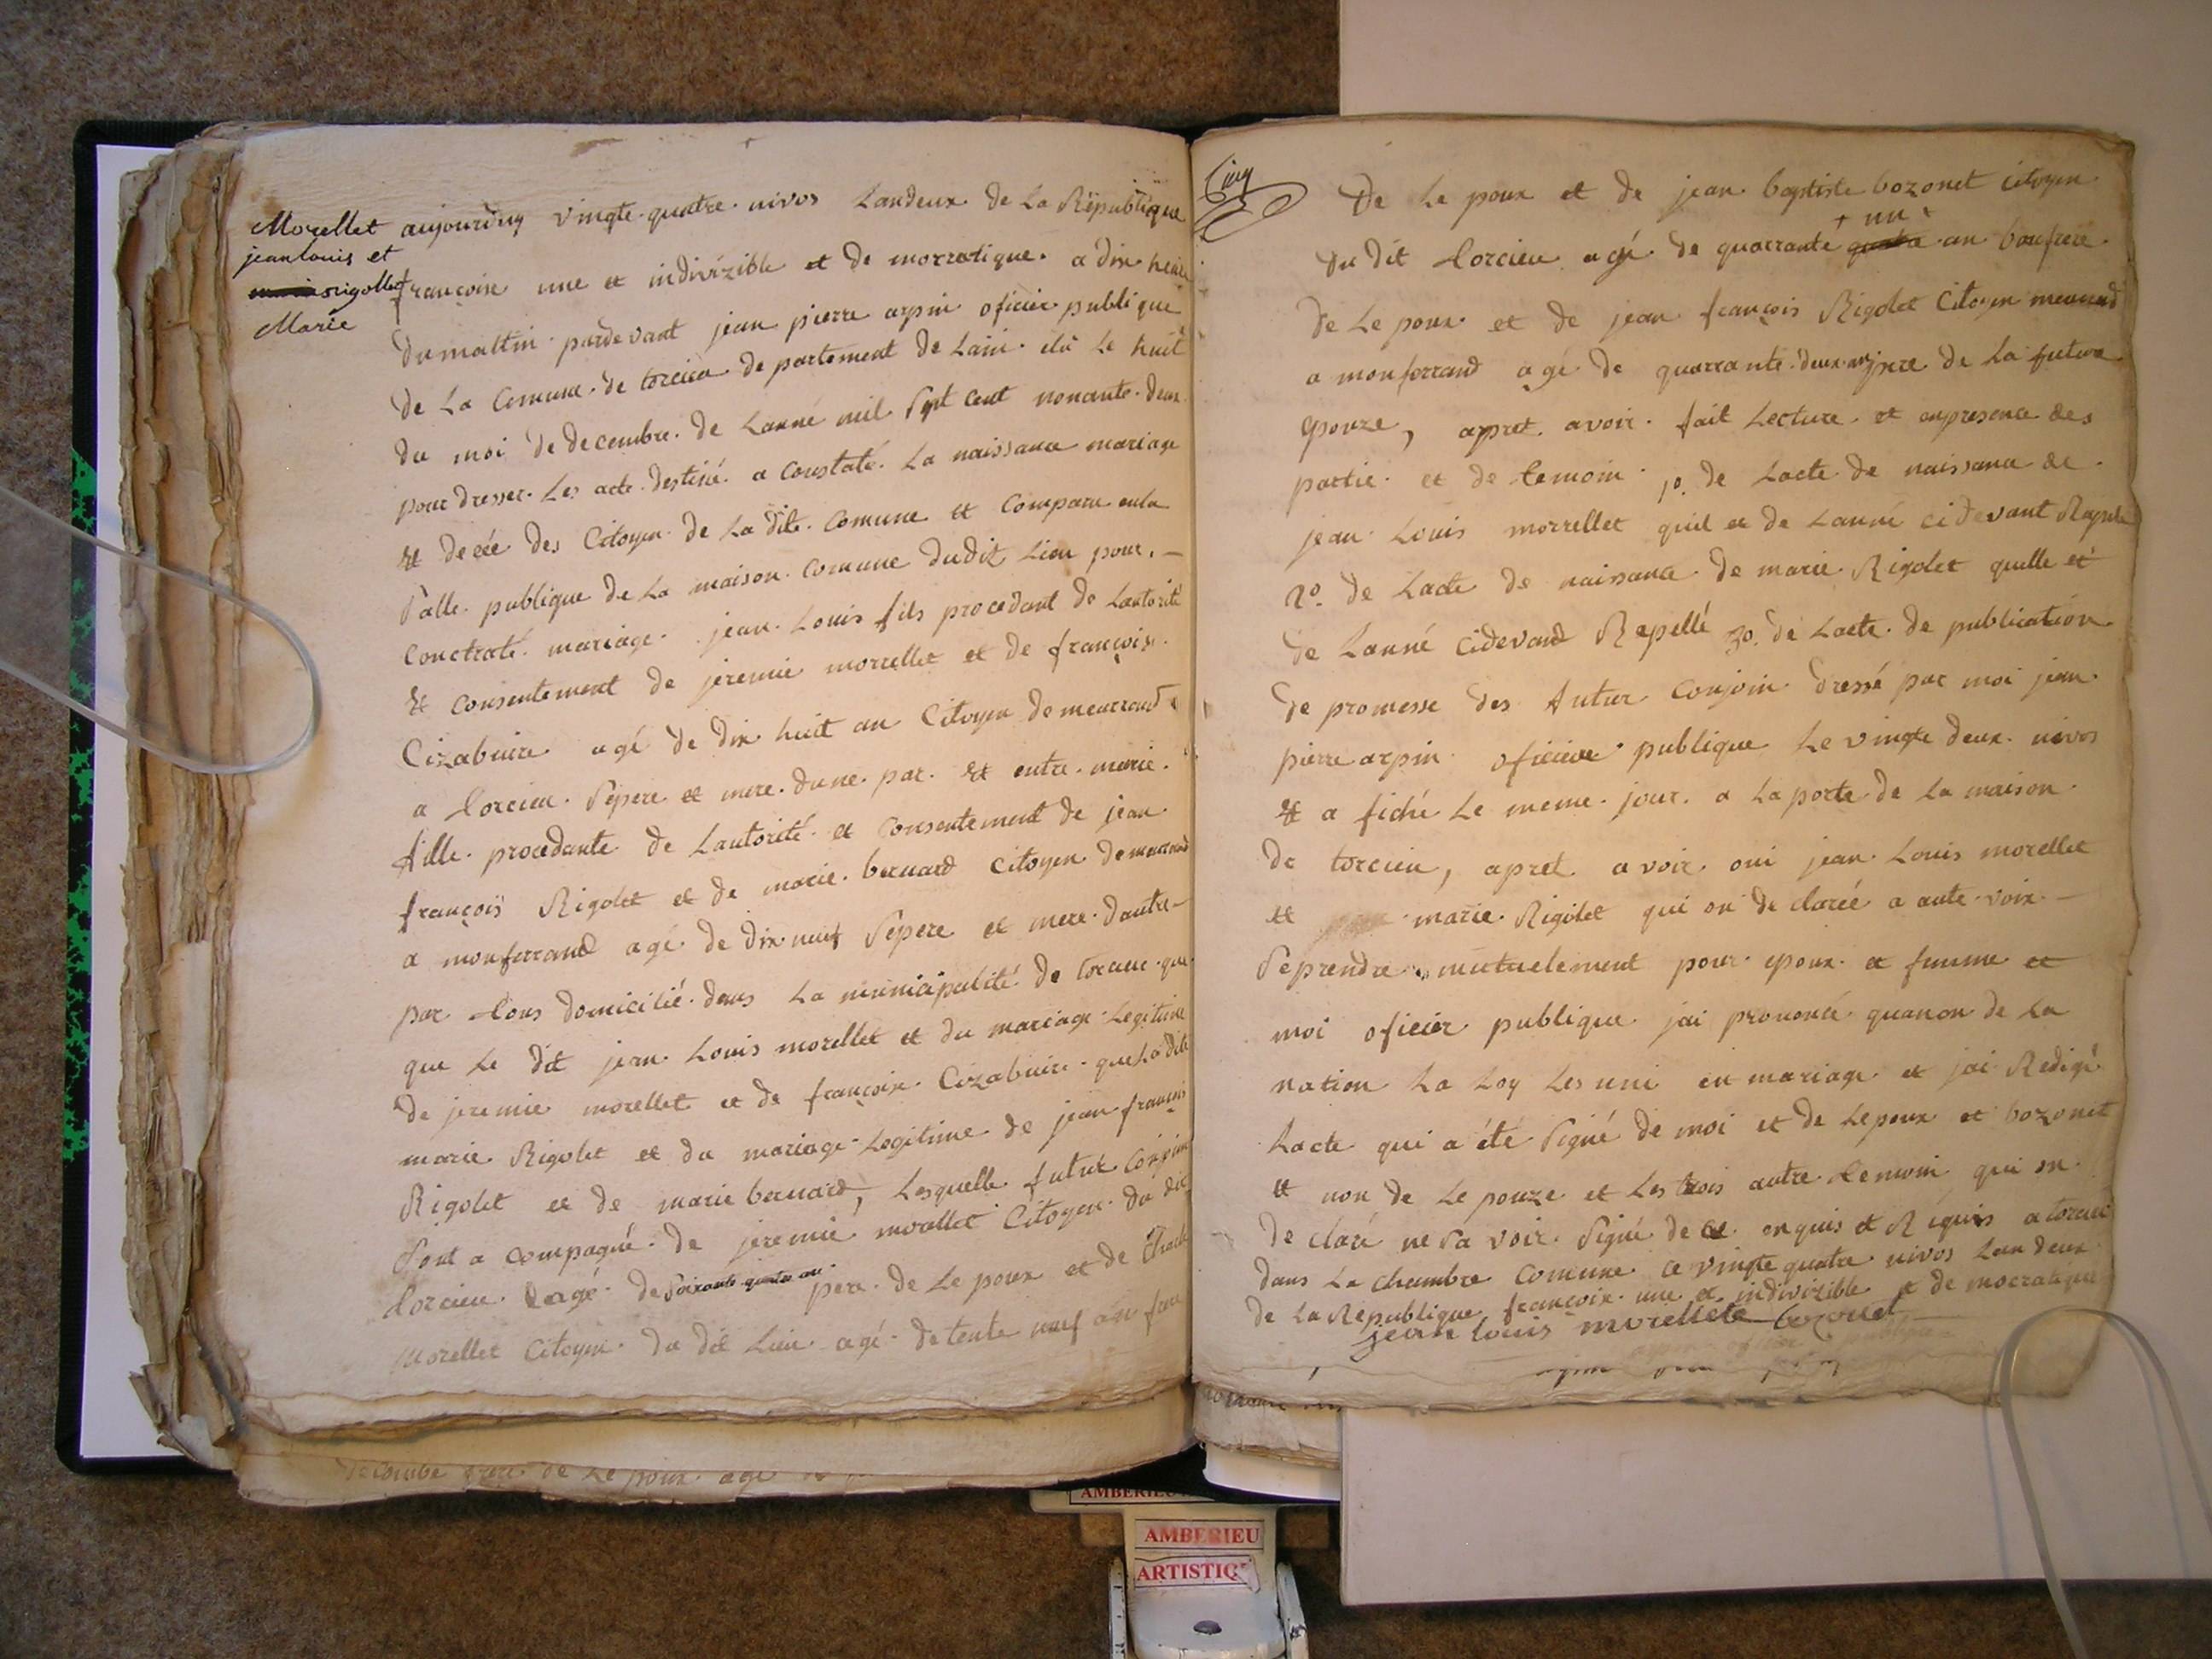 Morellet
jean louis et
rigollet
Marie
aujourduy vingte quatre nivos Landeux de La Republique
françoise une et indivizible et de mocratique a dix heure
du mattin pardevant jean pierre arpin oficier publique
de La Comune de torcieu de partement de Lain elu Le huit
du moi de decembre de Lanné mil Sept cent nonante deux
pour dresser Les acte destiné a Constaté La naissance mariage
et decée des Citoyen de La dite Comune et Comparu enla
Salle publique de La maison Comune dudit Lieu pour
Conctraté mariage jean Louis fils procedant de Lautorité
et Consentement de jeremie morrellet et de françoise
Cizabuire agé de dix huit an Citoyen demeurrand
a torcieu Sepere et mere dune par et entre marie
fille procedante de Lautorité et Consentement de jean
françois Rigolet et de marie bernard Citoyen demeurand
a monferrand agé de dix neuf Sepere et mere dautre
par tous domicilié dans La municipalité de torcieu que
que Le dit jean Louis morellet et du mariage Legitime
de jeremie morellet et de françoise Cizabuire que La dite
marie Rigolet et du mariage Legitime de jean françois
Rigolet et de marie bernard, Lesquelle futur Conjoin
Sont a compagné de jeremie morellet Citoyen du dit
torcieu agé de Soixante quatre an pere de Le poux et de
morellet Citoyen du dit Lieu agé de tente neuf an frere
Cinq
De Le poux et de jean baptiste bozonet citoyen
du dit torcieu agé de quarrante un an baufrere
de Le poux et de jean françois Rigolet Citoyen
a monferrand agé de quarrante deux an pere de La future
epouze, apret avoir fait Lecture et enpresence des
partie et de temoin 1o. de Lacte de naissance de
jean Louis morrellet quil et de Lanné cidevant
2o. de Lacte de naissance de marie Rigolet quelle et
de Lanné cidevand Rapellé 3o. de Lacte de publication
de promesse des futur Conjoin dressé par moi jean
pierre arpin oficier publique Le vingte deux nivos
et a fiché Le meme jour a La porte de La maison
de torcieu, apret avoir oui jean Louis morellet
et marie Rigolet qui on de clarée a aute voix
Seprendre mutuelement pour epoux et famme et
moi oficier publique jai prononcé quanon de La
nation La Loy Les uni en mariage et jai Redigé
Lacte qui a été Signé de moi et de Lepoux et bozonet
et non de Le pouze et Les trois autre temoin qui on
de claré ne Sa voir Signé de ce enquis et Requis a torcieu
dans La chambre Comune ce vingte quatre nivos Lan deux
de La Republique françoise une et indivizible et de mocratique
jean louis morellete bozonet
AMBERIEU
ARTISTIQ